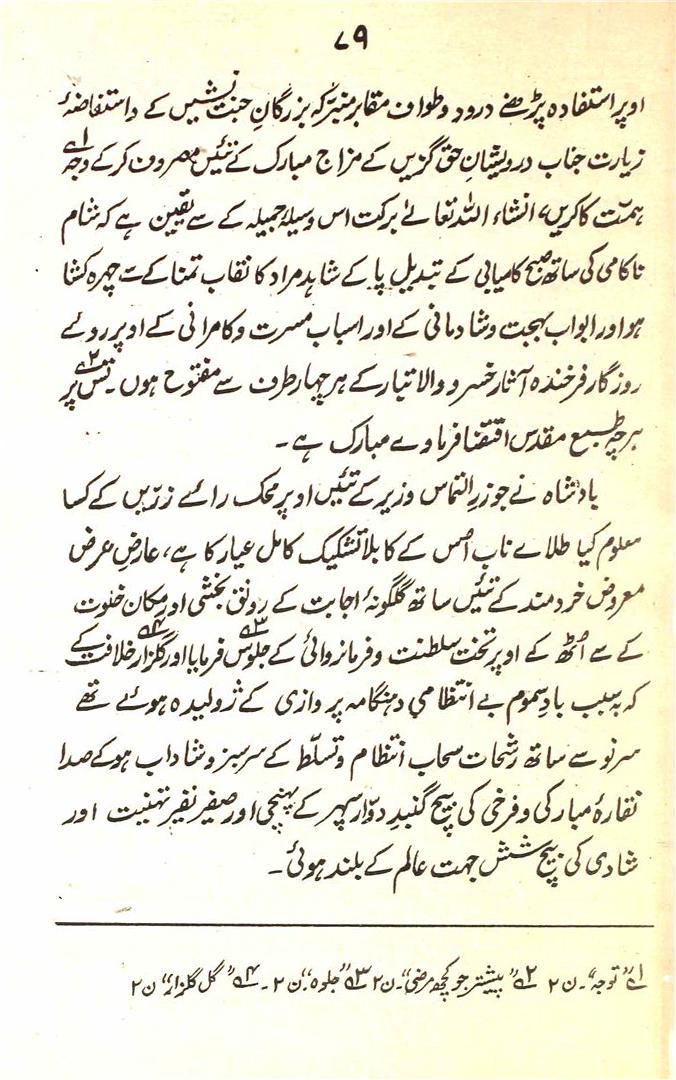 ۷۹
اوپر استفادہ پڑھنے درود و طواف مقابر متبرّکہ بزرگانِ جنت نشیں کے و استفاضۂ
زیارت جناب درویشانِ حق گزیں کے مزاج مبارک کے تئیں مصروف کر کے وجہ ۱؎
ہمّت کا کریں، انشاء اللہ تعالےٰ برکت اس وسیلۂ جمیلہ کے سے یقین ہے کہ شام
ناکامی کی ساتھ صبح کامیابی کے تبدیل پا کے شاہد مراد کا نقاب تمنا کے سے چہرہ کشا
ہو اور ابواب بہجت و شادمانی کے اور اسباب مسرت و کامرانی کے اوپر روئے
روزگار فرخندہ آثار خسرو والا تبار کے ہر چہار طرف سے مفتوح ہوں۔ تس پر ۲؎
ہرچہ طبیع مقدس اقتضا فرماوے مبارک ہے۔
بادشاہ نے جو زرِ التماس وزیر کے تئیں اوپر محک رائے زرّیں کے کسا
معلوم کیا طلاے ناب اس کے کا بلا تشکیک کامل عیار کا ہے، عارضِ عرض
معروض خردمند کے تئیں ساتھ گلگونۂ اجابت کے رونق بخشی اور مکان خلوت
کے سے اُٹھ کے اوپر تخت سلطنت و فرمانروائی کے جلوس ۳؎ فرمایا اور گلزار ۴؎ خلافت کے
کہ بہ سبب بادِ سموم بے انتظامی و ہنگامہ پردازی کے ژولیدہ ہوئے تھے
سرنو سے ساتھ رشحات سحاب انتظام و تسلّط کے سرسبز و شاداب ہو کے صدا
نقارۂ مبارکی و فرخی کی بیچ گنبدِ دوّار سپہر کے پہنچی اور صفیر نفیر تہنیت اور
شادی کی بیچ شش جہت عالم کے بلند ہوئی۔
۱؎ ”توجہ“۔ ن ۲ ۲؎ ”پیشتر جو کچھ مرضی“۔ ن ۲ ۳؎ ”جلوہ“۔ ن ۲۔ ۴؎ ”گل گلزار“ ن ۲